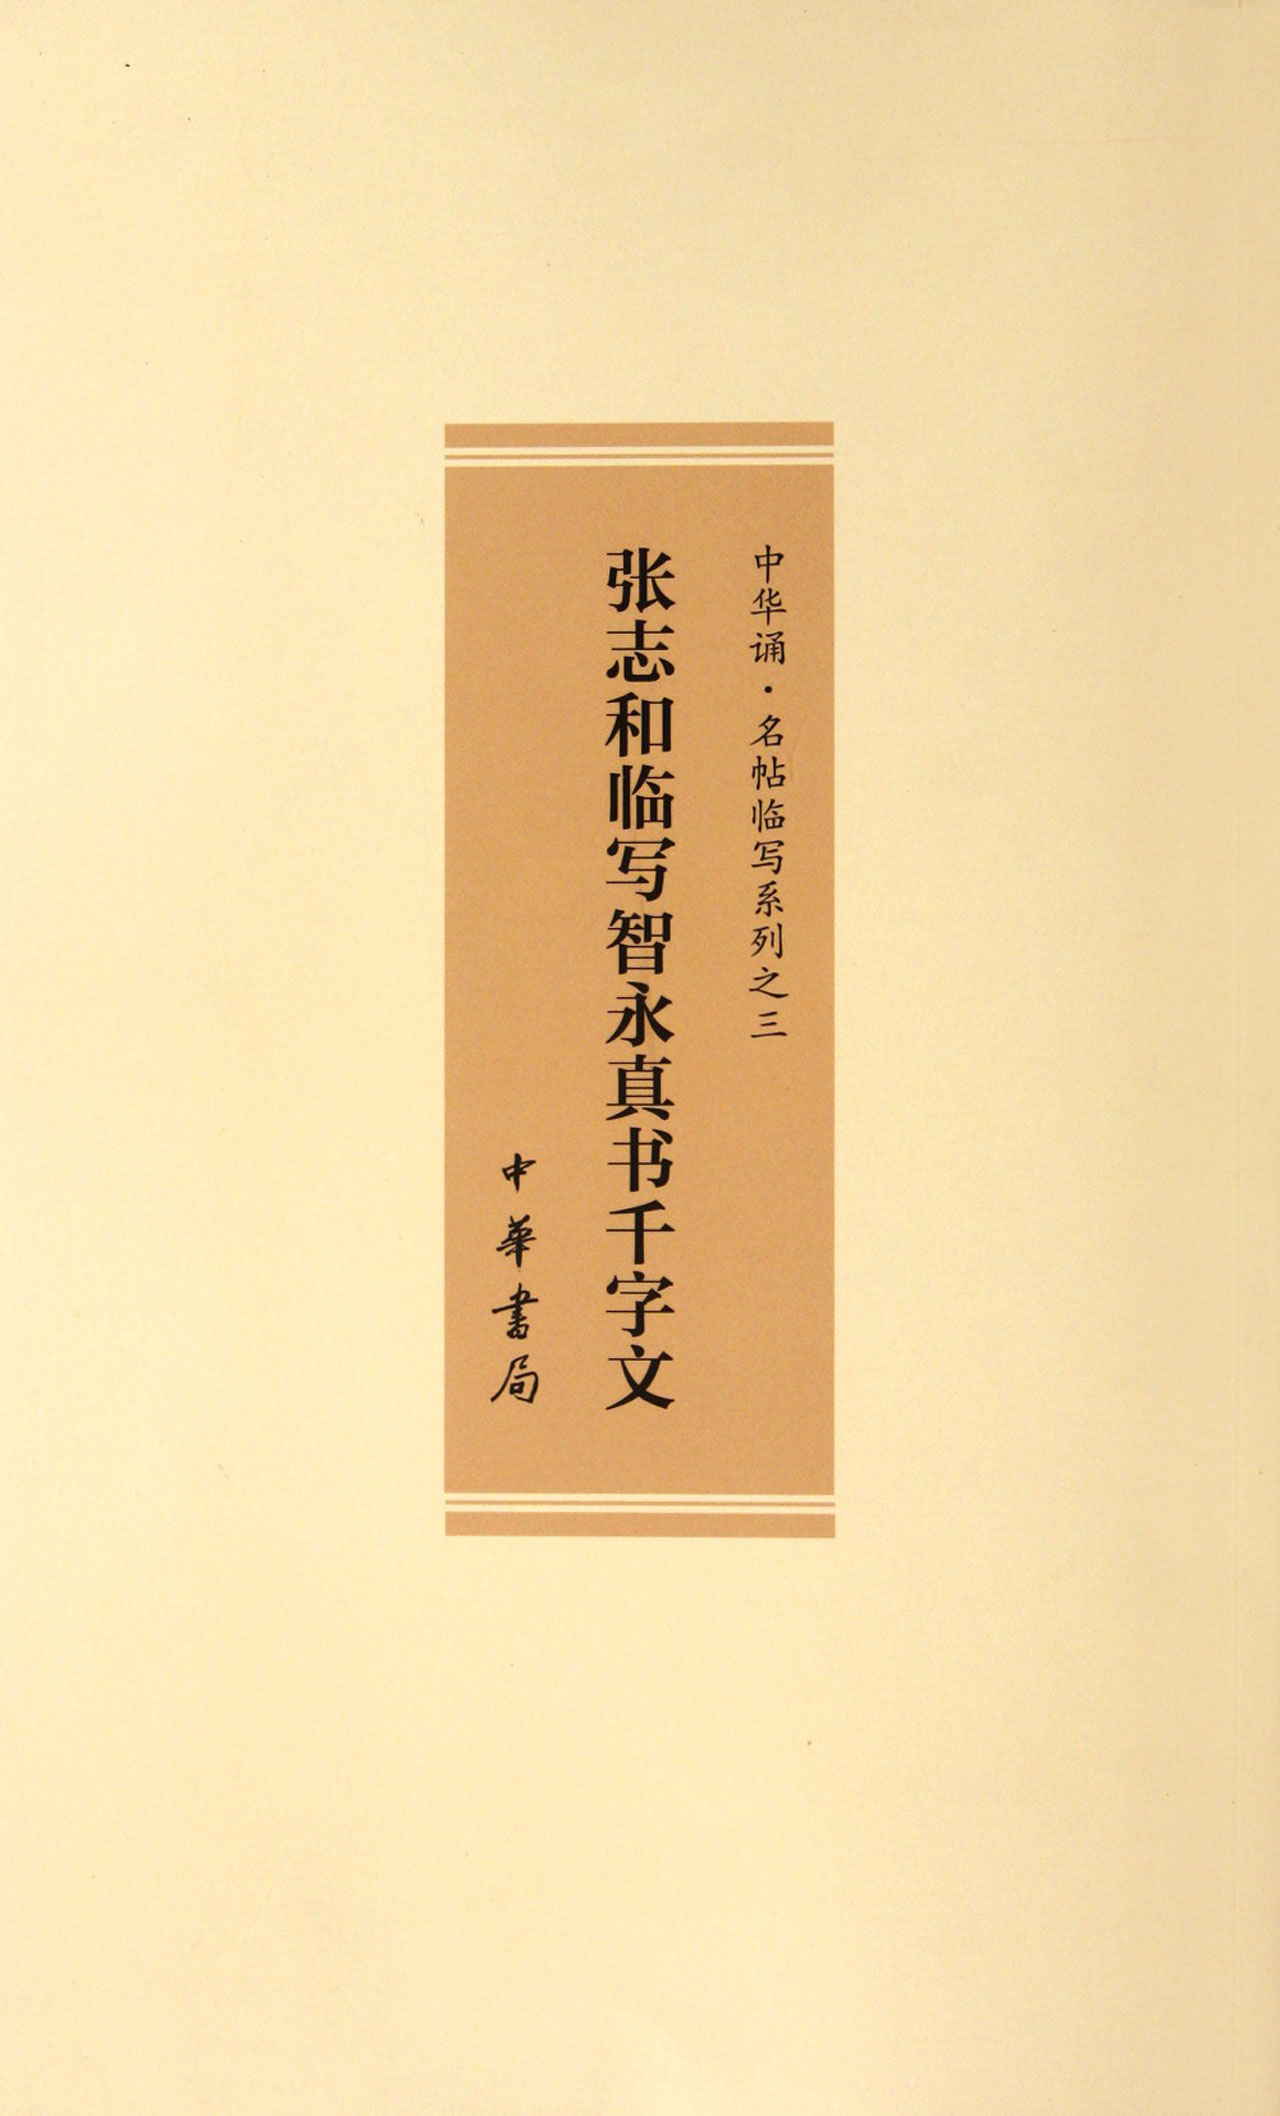 中华诵·名帖临写系列之三
张志和临写智永真书千字文
中華書局